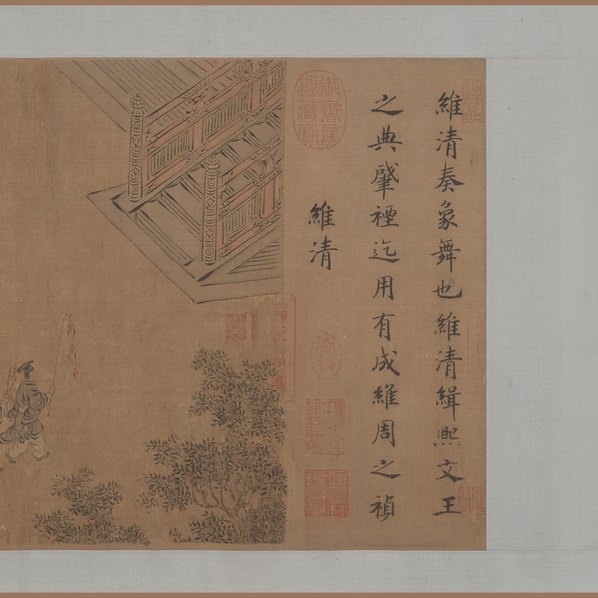 維清奏象舞也維清緝熙文王
之典肇禋迄用有成維周之禎
維清